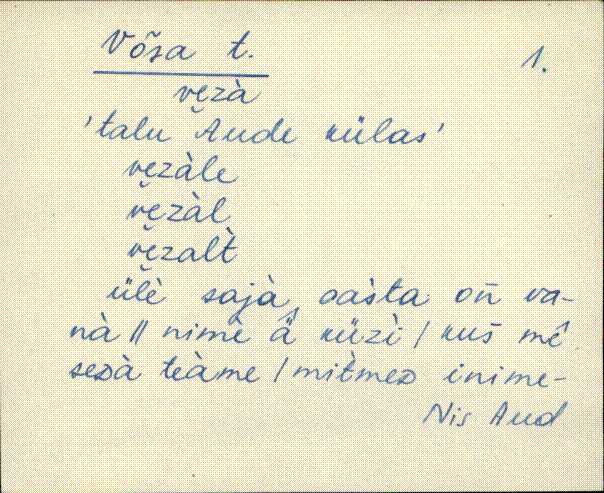 Võsa t.
1.
ve̮zà
'talu Aude külas'
ve̮zàle
ve̮zàl
ve̮zalt̀
ülè sajà, aàsta on̄ va-
nà || nimè ä küzì / kus̄ mê
sezà teàme / mit̀mez inime-
Nis Aud